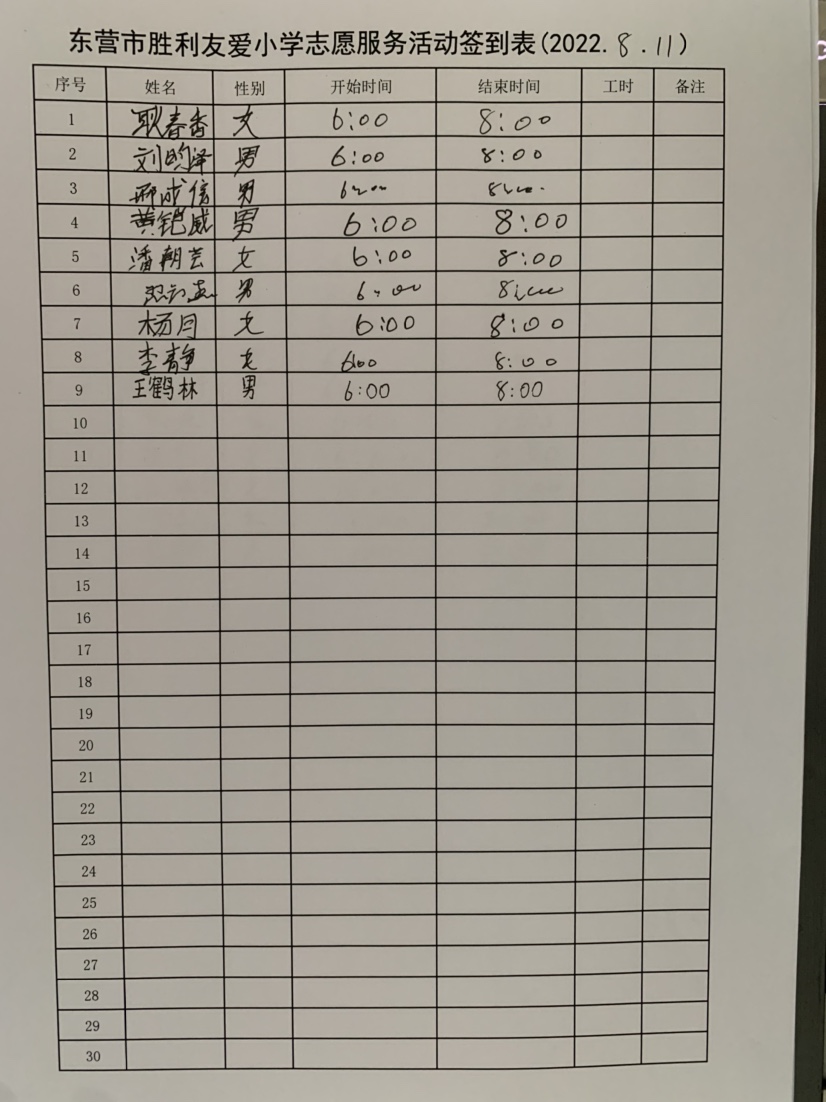 东营市胜利友爱小学志愿服务活动签到表(2022.8.11)
序号 姓名 性别 开始时间 结束时间 工时 备注
1 耿春香 女 6:00 8:00
2 刘昀泽 男 6:00 8:00
3 邢成信 男 6:00 8:00
4 黄铠威 男 6:00 8:00
5 潘朝芸 女 6:00 8:00
6 男 6:00 8:00
7 杨月 女 6:00 8:00
8 李静 女 6:00 8:00
9 王鹤林 男 6:00 8:00
10
11
12
13
14
15
16
17
18
19
20
21
22
23
24
25
26
27
28
29
30